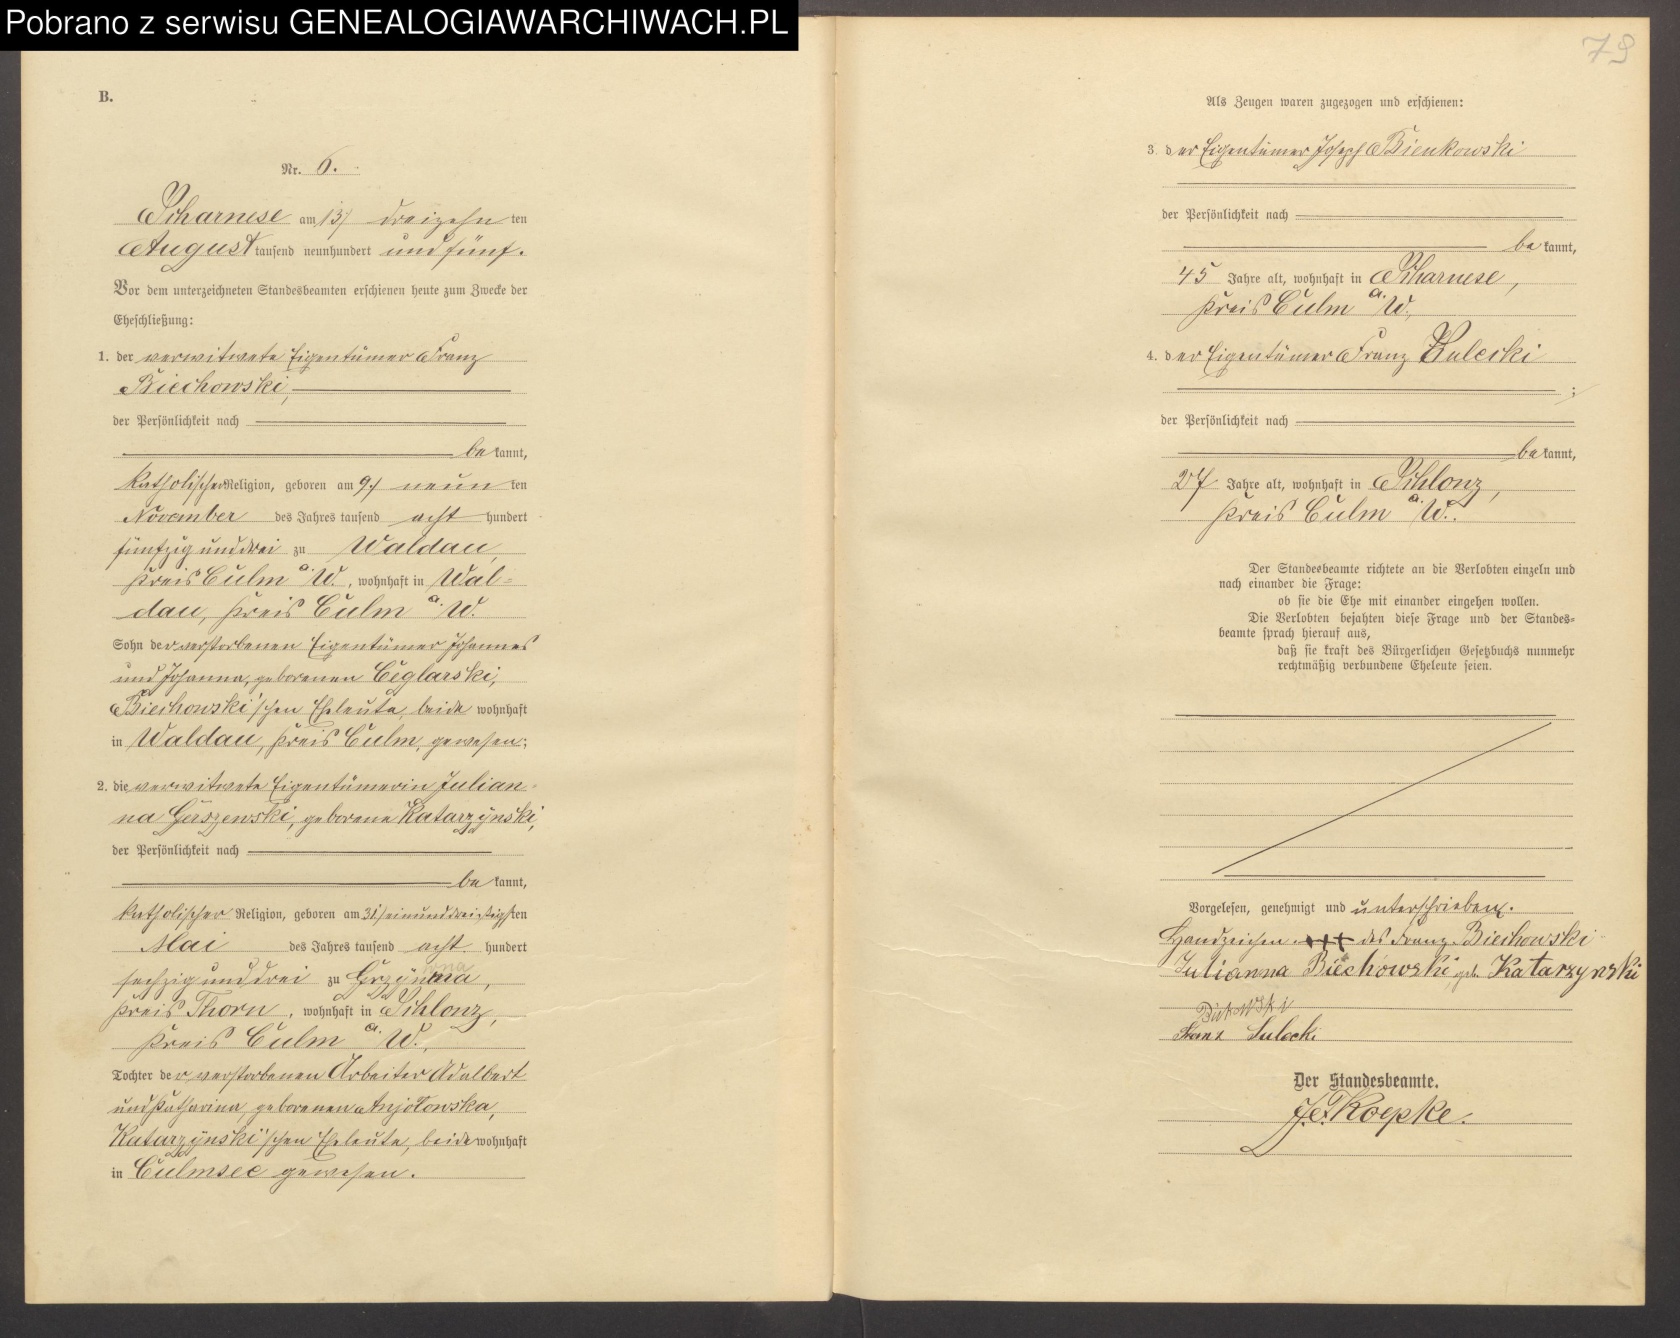 Pobrano z serwisu GENEALOGIAWARCHIWACH.PL
B.
Nr. 6.
Scharnese am 13/ dreizehn ten
August tausend neunhundert und fünf.
Vor dem unterzeichneten Standesbeamten erschienen heute zum Zwecke der
Eheschließung:
1. der verwitwete Eigentümer Franz
Biechowski,
der Persönlichkeit nach
be kannt,
katholischer Religion, geboren am 9./ neun ten
November des Jahres tausend acht hundert
fünfzig und drei zu Waldau,
Kreis Culm a. W., wohnhaft in Wal-
dau, Kreis Culm a. W.
Sohn der verstorbenen Eigentümer Johannes
und Johanna, geborenen Ceglarski,
Biechowski'schen Eheleute, beide wohnhaft
in Waldau, Kreis Culm, gewesen;
2. die verwitwete Eigentümerin Julian-
na Gerszewski, geborene Katarzynski,
der Persönlichkeit nach
be kannt,
katholischer Religion, geboren am 31/ einunddreißigsten
Mai des Jahres tausend acht hundert
sechzig und drei zu Grzywna,
Kreis Thorn, wohnhaft in Schlonz,
Kreis Culm a. W.,
Tochter der verstorbenen Arbeiter Adalbert
und Katharina, geborenen Anjotowska,
Katarzynski'schen Eheleute, beide wohnhaft
in Culmsee gewesen.
79
Als Zeugen waren zugezogen und erschienen:
3. der Eigentümer Joseph Bienkowski
der Persönlichkeit nach
be kannt,
45 Jahre alt, wohnhaft in Scharnese,
Kreis Culm a. W.,
4. der Eigentümer Franz Suleski
;
der Persönlichkeit nach
be kannt,
27 Jahre alt, wohnhaft in Schlonz,
Kreis Culm a. W..
Der Standesbeamte richtete an die Verlobten einzeln und
nach einander die Frage:
ob sie die Ehe mit einander eingehen wollen.
Die Verlobten bejahten diese Frage und der Standes-
beamte sprach hierauf aus,
daß sie kraft des Bürgerlichen Gesetzbuchs nunmehr
rechtmäßig verbundene Eheleute seien.
Vorgelesen, genehmigt und unterschrieben.
Handzeichen +++ des Franz Biechowski
Julianna Biechowski geb. Katarzynski
Franz Sulecki
Der Standesbeamte.
Koepke.